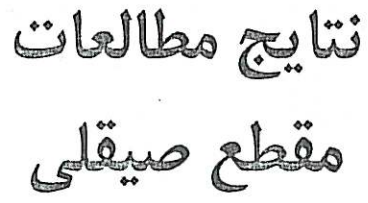 نتایج مطالعات
مقطع صیقلی